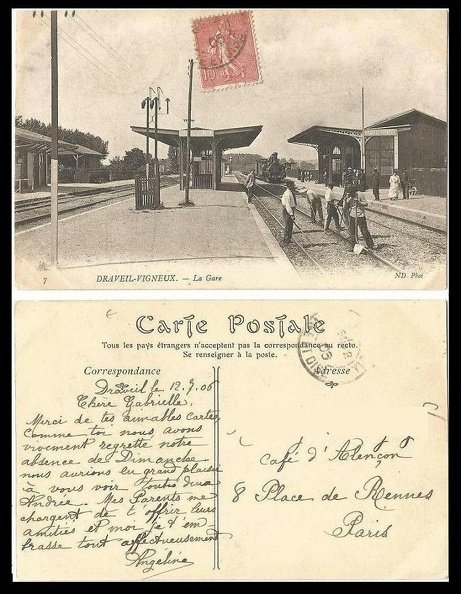 10
7
DRAVEIL-VIGNEUX. - La Gare
ND Phot
Carte Postale
Tous les pays étrangers n'acceptent pas la correspondance au recto.
Se renseigner à la poste.
Correspondance
Adresse
Draveil le 12.7.06
Chère Gabrielle,
Merci de tes aimables cartes
Comme toi nous avons
vivement regretté notre
absence de Dimanche
nous aurions eu grand plaisir
à vous voir toutes deux
Andrée. Mes Parents me
chargent de t'offrir leurs
amitiés et moi je t'em
brasse tout affectueusement
Angéline
Café d'Alençon
8 Place de Rennes
Paris